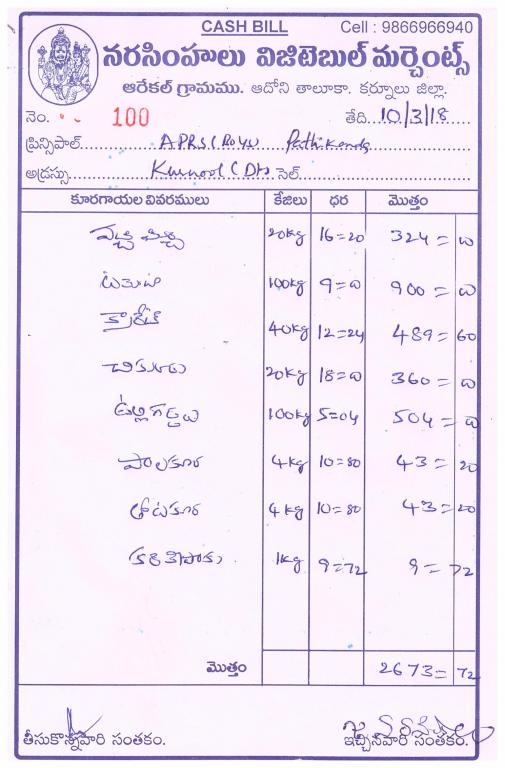 CASH BILL Cell : 9866966940
నరసింహులు విజిటెబుల్ మర్చెంట్స్
ఆరేకల్ గ్రామము. ఆదోని తాలూకా. కర్నూలు జిల్లా.
నెం. 100 తేది. 10/3/18
ప్రిన్సిపాల్ APRS (Boys) Pathikonda
అడ్రస్సు Kurnool (Dt) సెల్.
కూరగాయల వివరములు కేజీలు ధర మొత్తం
పచ్చి మిర్చి 20kg 16=20 324=00
టమోటా 100kg 9=00 900=00
క్యారేట్ 40kg 12=24 489=60
చికుడు 20kg 18=00 360=00
ఉల్లిగడ్డలు 100kg 5=04 504=00
పాలకూర 4kg 10=80 43=20
తోటకూర 4kg 10=80 43=20
కరివేపాకు 1kg 9=72 9=72
మొత్తం 2673=72
తీసుకొన్నవారి సంతకం. ఇచ్చినవారి సంతకం.